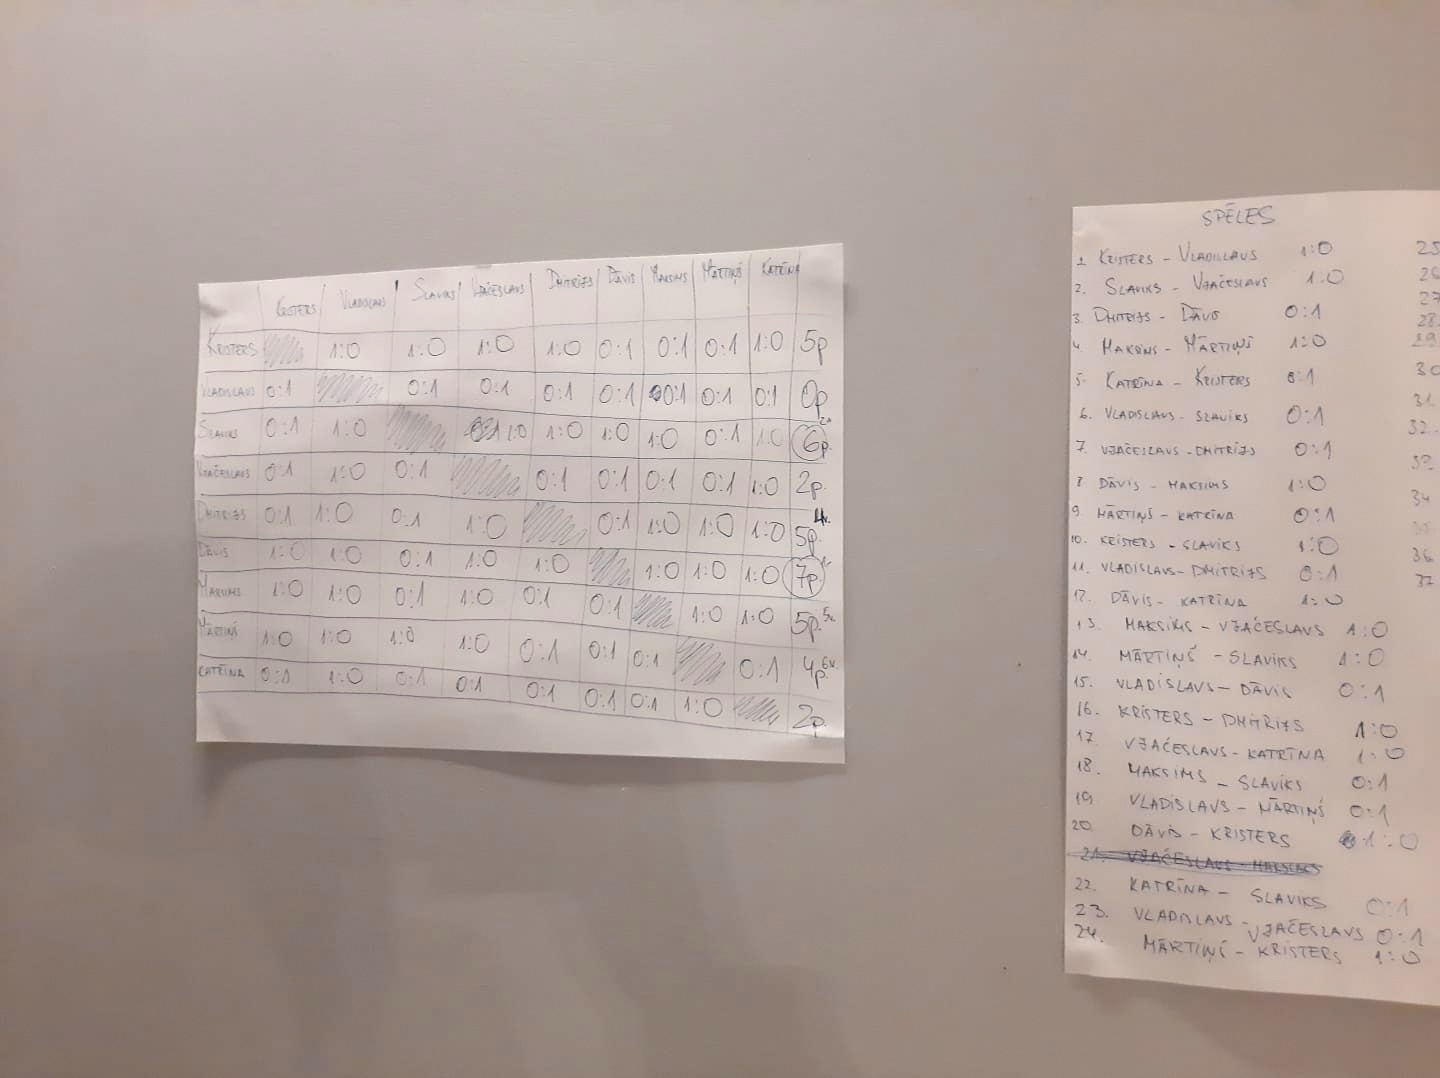 KRISTERS VLADISLAVS SLAVIKS VJAČESLAVS DMITRIJS DĀVIS MAKSIMS MĀRTIŅŠ KATRĪNA
KRISTERS 1:0 1:0 1:0 1:0 0:1 0:1 0:1 1:0 5p
VLADISLAVS 0:1 0:1 0:1 0:1 0:1 0:1 0:1 0:1 0p
SLAVIKS 0:1 1:0 1:0 1:0 1:0 1:0 0:1 1:0 6p.
VJAČESLAVS 0:1 1:0 0:1 0:1 0:1 0:1 0:1 1:0 2p.
DMITRIJS 0:1 1:0 0:1 1:0 0:1 1:0 1:0 1:0 5p. 4v.
DĀVIS 1:0 1:0 0:1 1:0 1:0 1:0 1:0 1:0 7p
MAKSIMS 1:0 1:0 0:1 1:0 0:1 0:1 1:0 1:0 5p. 5v.
MĀRTIŅŠ 1:0 1:0 1:0 1:0 0:1 0:1 0:1 0:1 4p. 6v.
KATRĪNA 0:1 1:0 0:1 0:1 0:1 0:1 0:1 1:0 2p.
SPĒLES
1 KRISTERS - VLADISLAVS 1:0 25
2. SLAVIKS - VJAČESLAVS 1:0 26
3. DMITRIJS - DĀVIS 0:1 27
4. MAKSIMS - MĀRTIŅŠ 1:0 28.
5. KATRĪNA - KRISTERS 0:1 29
6. VLADISLAVS - SLAVIKS 0:1 30
7. VJAČESLAVS - DMITRIJS 0:1 31.
8 DĀVIS - MAKSIMS 1:0 32.
9 MĀRTIŅŠ - KATRĪNA 0:1 33
10. KRISTERS - SLAVIKS 1:0 34
11. VLADISLAVS - DMITRIJS 0:1 35
12. DĀVIS - KATRĪNA 1:0 36
13. MAKSIMS - VJAČESLAVS 1:0 37
14. MĀRTIŅŠ - SLAVIKS 1:0
15. VLADISLAVS - DĀVIS 0:1
16. KRISTERS - DMITRIJS 1:0
17. VJAČESLAVS - KATRĪNA 1:0
18. MAKSIMS - SLAVIKS 0:1
19 VLADISLAVS - MĀRTIŅŠ 0:1
20. DĀVIS - KRISTERS 1:0
21. VJAČESLAVS - MAKSIMS
22. KATRĪNA - SLAVIKS 0:1
23. VLADISLAVS - VJAČESLAVS 0:1
24. MĀRTIŅŠ - KRISTERS 1:0